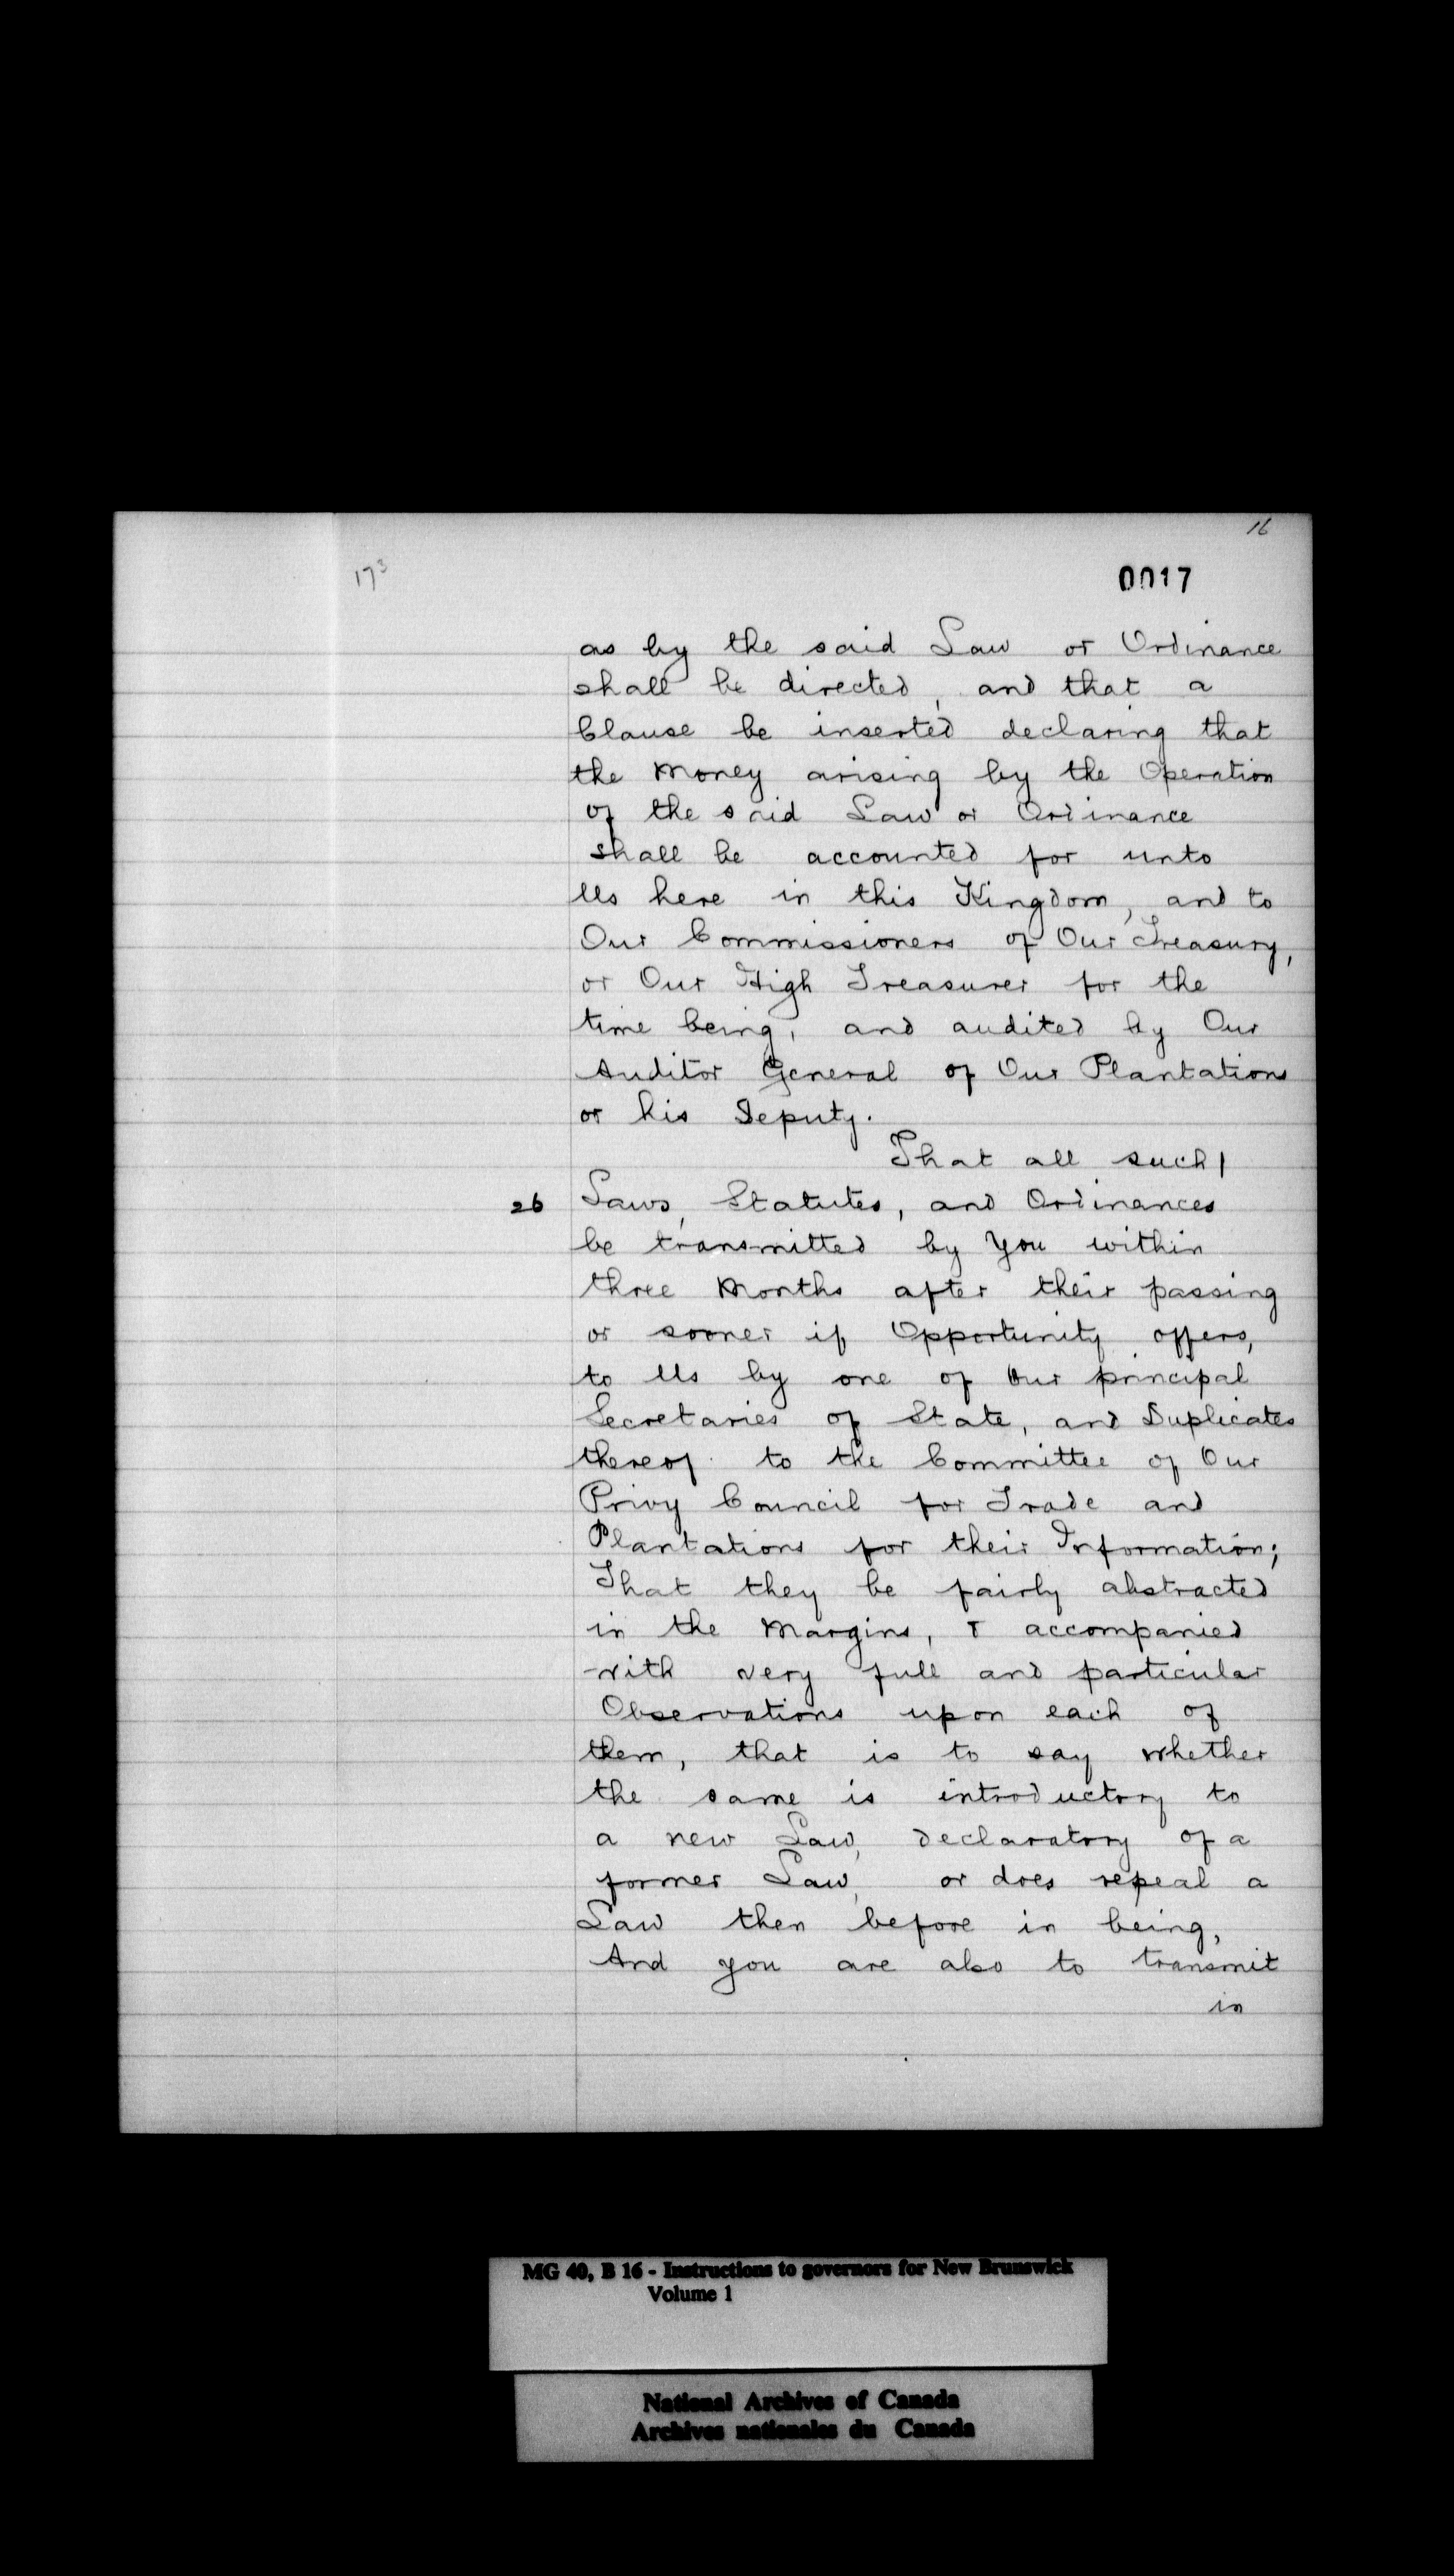 16
173
0017
as by the said Law or Ordinance
shall be directed, and that a
Clause be inserted declaring that
the Money arising by the Operation
of the said Law or Ordinance
shall be accounted for unto
Us here in this Kingdom, and to
Our Commissioners of Our Treasury,
or Our High Treasurer for the
time being, and audited by Our
Auditor General of Our Plantations
or his Deputy.
That all such
26 Laws, Statutes, and Ordinances
be transmitted by You within
three Months after their passing
or sooner if Opportunity offers,
to Us by one of Our principal
Secretaries of State, and Duplicates
thereof to the Committee of Our
Privy Council for Trade and
Plantations for their Information;
That they be fairly abstracted
in the Margins, & accompanied
with very full and particular
Observations upon each of
them, that is to say whether
the same is introductory to
a new Law, declaratory of a
former Law, or does repeal a
Law then before in being,
And you are also to transmit
in
MG 40, B 16 - Instructions to governors for New Brunswick
Volume 1
National Archives of Canada
Archives nationales du Canada